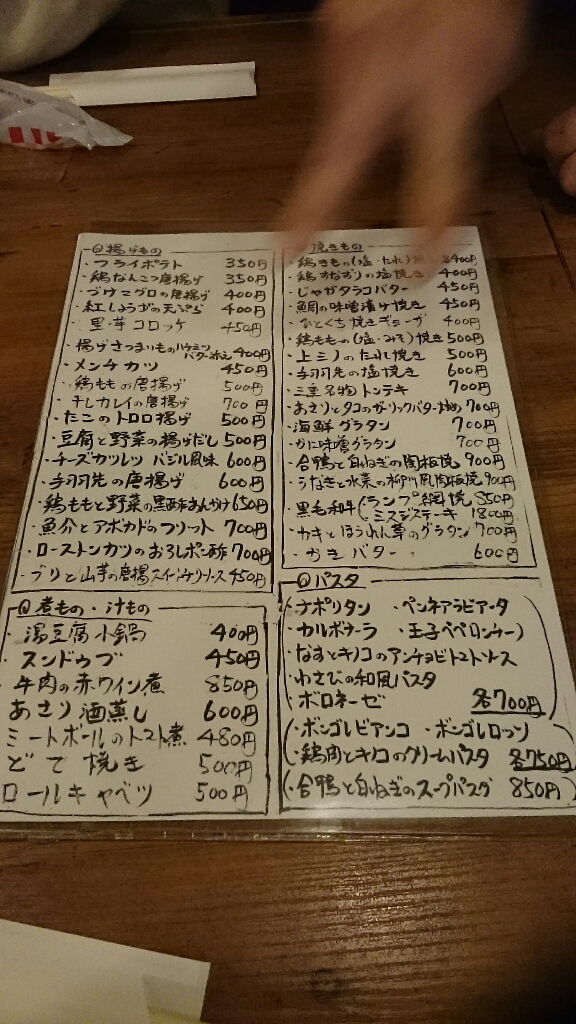 ◎揚げもの
・フライポテト 350円
・鶏なんこつ唐揚げ 350円
・づけマグロの唐揚げ 400円
・紅しょうがの天ぷら 400円
・里芋コロッケ 450円
・揚げさつまいものハチミツバター添え 400円
・メンチカツ 450円
・鶏ももの唐揚げ 500円
・干しカレイの唐揚げ 700円
・たこのトロロ揚げ 500円
・豆腐と野菜の揚げだし 500円
・チーズカツレツ バジル風味 600円
・手羽先の唐揚げ 600円
・鶏ももと野菜の黒酢あんかけ 650円
・魚介とアボカドのフリット 700円
・ローストンカツのおろしポン酢 700円
・ブリと山芋の唐揚スイートチリソース 450円
◎煮もの・汁もの
・湯豆腐小鍋 400円
・スンドゥブ 450円
・牛肉の赤ワイン煮 850円
あさり酒蒸し 600円
ミートボールのトマト煮 480円
どて焼き 500円
ロールキャベツ 500円
焼きもの
・鶏きも(塩・たれ) 400円
・鶏すなずりの塩焼き 400円
・じゃがタラコバター 450円
・鯛の味噌漬け焼き 450円
・ひとくち焼きギョーザ 400円
・鶏もも(塩・みそ)焼き 500円
・上ミノのたれ焼き 500円
・手羽先の塩焼き 600円
・三重名物トンテキ 700円
・あさりとタコのガーリックバター炒め 700円
・海鮮グラタン 700円
・かに味噌グラタン 700円
・合鴨と白ねぎの陶板焼 900円
・うなぎと水菜の柳川風陶板焼 900円
・黒毛和牛(ランプ網焼 850円
・ミスジステーキ 1800円
・カキとほうれん草のグラタン 700円
・かきバター 600円
◎パスタ
・ナポリタン ・ペンネアラビアータ
・カルボナーラ ・玉子ペペロンチーノ
・なすとキノコのアンチョビトマトソース
・わさびの和風パスタ
・ボロネーゼ 各700円
・ボンゴレビアンコ ・ボンゴレロッソ
・鶏肉とキノコのクリームパスタ 各750円
・合鴨と白ねぎのスープパスタ 850円